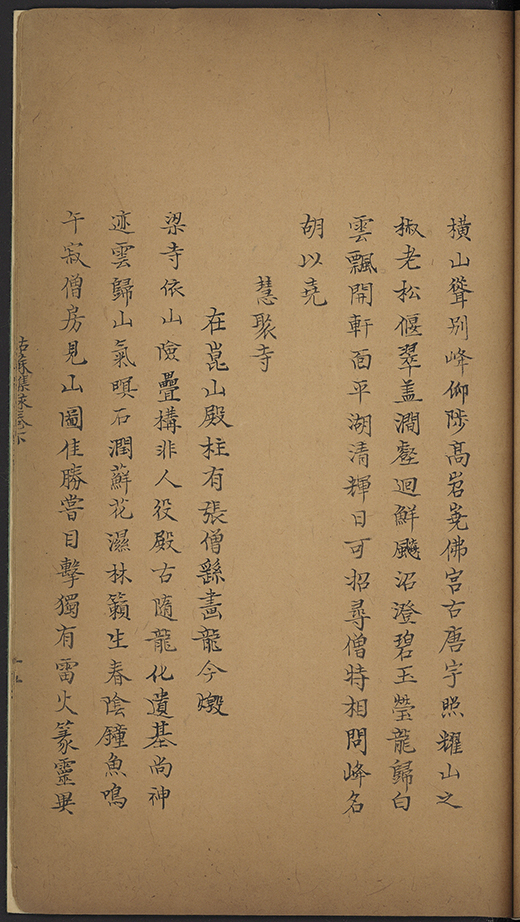 橫山聳别峰仰陟髙岩嶤佛宫古唐宇照耀山之
椒老松偃翠盖澗壑迴鮮飈沼澄碧玉瑩龍歸白
雲飄開軒面平湖清輝日可招尋僧時相問峰名
胡以堯
慧聚寺
在崑山殿柱有張僧繇畫龍今燬
梁寺依山險疊構非人役殿古隨龍化遺基尚神
迹雲歸山氣暝石潤蘚花濕林籟生春陰鐘魚鳴
午寂僧房見山圖佳勝嘗目擊獨有雷火篆靈異
姑蘇雜詠卷下